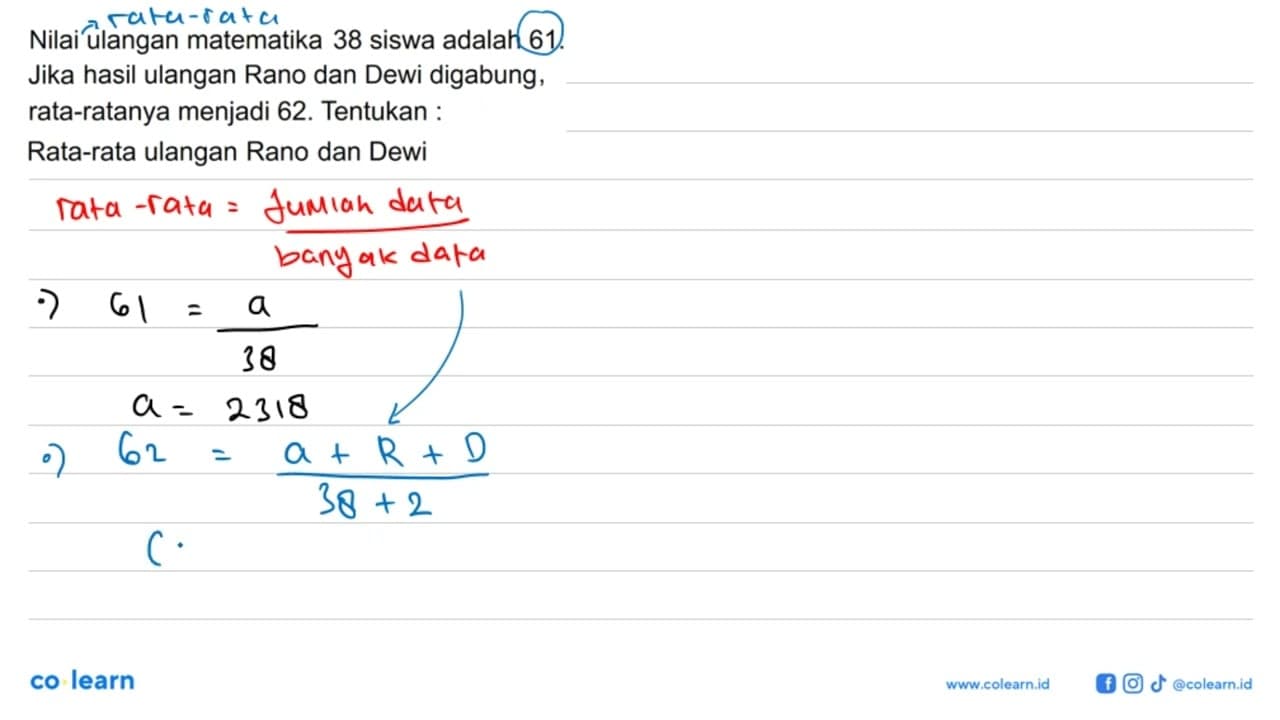 rata-rata
Nilai ulangan matematika 38 siswa adalah 61.
Jika hasil ulangan Rano dan Dewi digabung,
rata-ratanya menjadi 62. Tentukan :
Rata-rata ulangan Rano dan Dewi
rata-rata = Jumlah data
banyak data
•) 61 = a
38
a = 2318
•) 62 = a + R + D
38 + 2
(.
co learn
www.colearn.id
@colearn.id